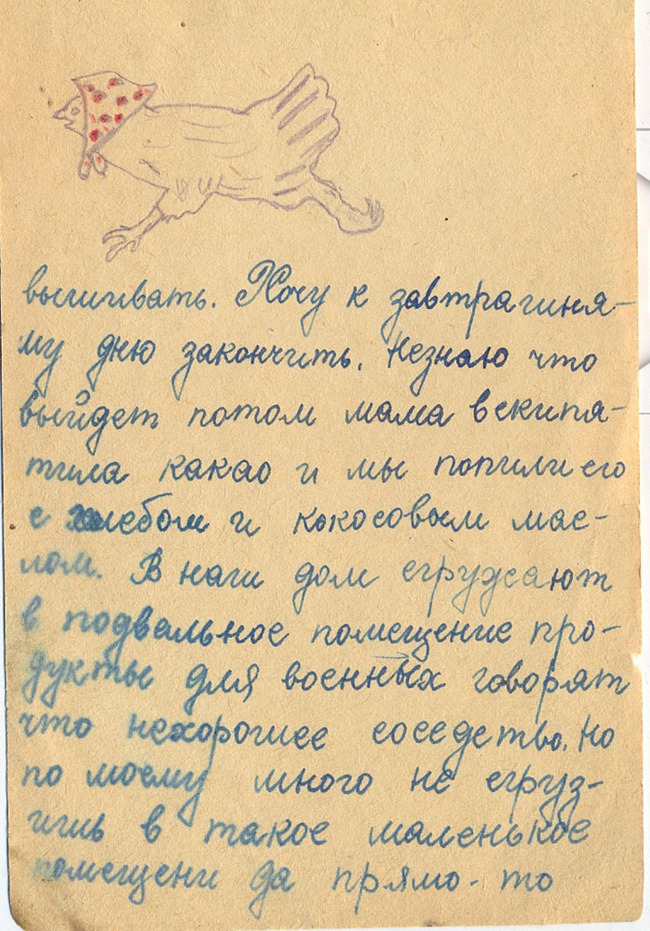 вышивать. Хочу к завтрагиня-
му дню закончить. Незнаю что
выйдет потом мама вскипя-
тила какао и мы попили его
с хлебом и кокосовым мас-
лом. В наш дом сгружают
в подвальное помещение про-
дукты для военных говорят
что нехорошее соседство. Но
по моему много не сгруз-
ишь в такое маленькое
помещени да прямо-то